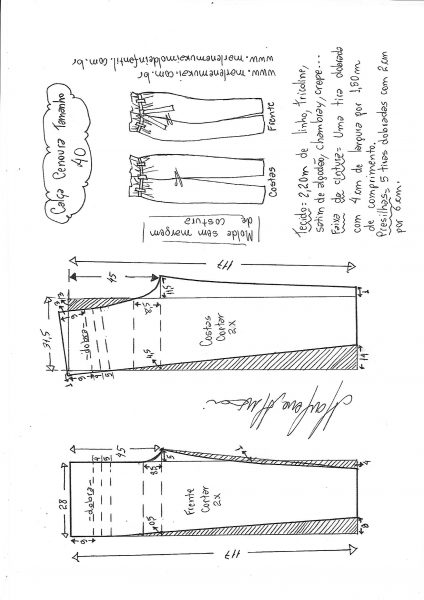 Calça Cenoura Tamanho
40
www.marlenemukai.com.br
www.marlenemukaimoldeinfantil.com.br
Frente
Costas
Molde sem margem
de costura
Tecido = 2,20m de linho, tricoline,
satim de algodão, chambray, crepe...
Faixa de cintura = Uma tira dobrada
com 4 cm de largura por 1,50m
de comprimento.
Presilhas = 5 tiras dobradas com 2 cm
por 6 cm.
117
45
34,5
=dobra=
Costas
Cortar
2x
11,5
8,5
4,5
14
117
45
28
=dobra=
Frente
Cortar
2x
5
8